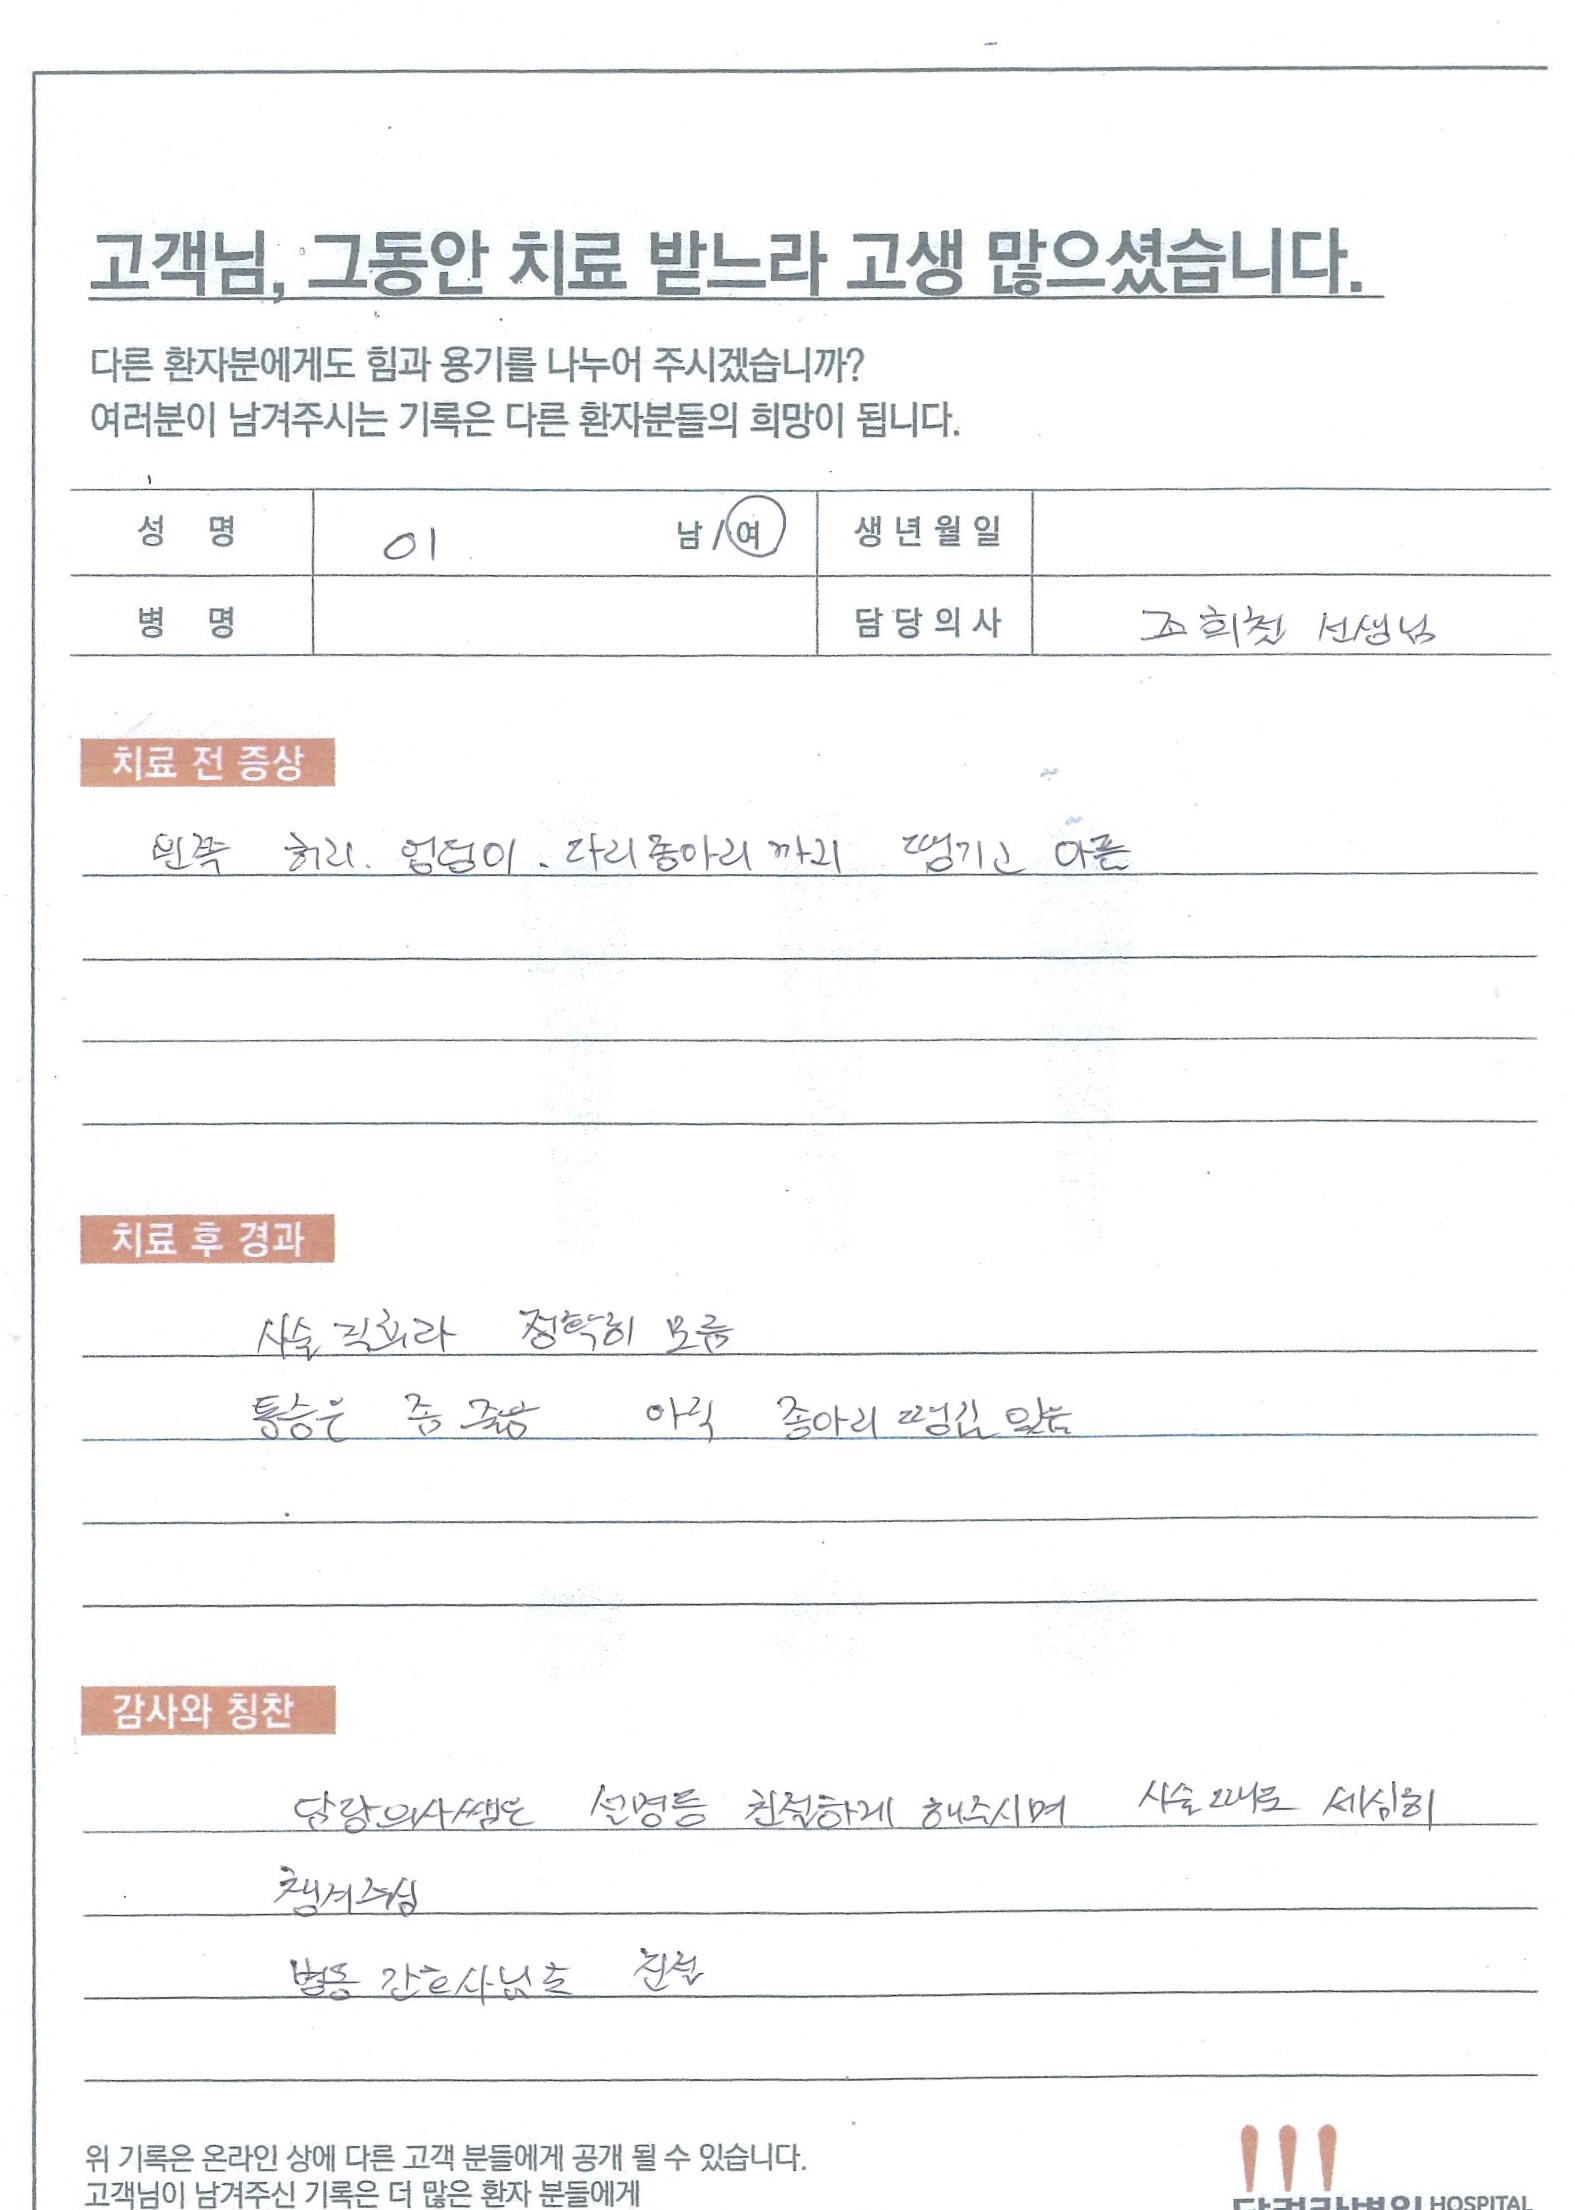 고객님, 그동안 치료 받느라 고생 많으셨습니다.
다른 환자분에게도 힘과 용기를 나누어 주시겠습니까?
여러분이 남겨주시는 기록은 다른 환자분들의 희망이 됩니다.
성 명 이 남/여 생년월일
병 명 담당의사 조희철 선생님
치료 전 증상
왼쪽 허리. 엉덩이. 다리종아리까지 땡기고 아픔
치료 후 경과
시술 직후라 정확히 모름
통증은 좀 줄음 아직 종아리 땡김 있음
감사와 칭찬
담당의사쌤은 설명등 친절하게 해주시며 시술때도 세심히
챙겨주심
병동 간호사님도 친절
위 기록은 온라인 상에 다른 고객 분들에게 공개 될 수 있습니다.
고객님이 남겨주신 기록은 더 많은 환자 분들에게
HOSPITAL